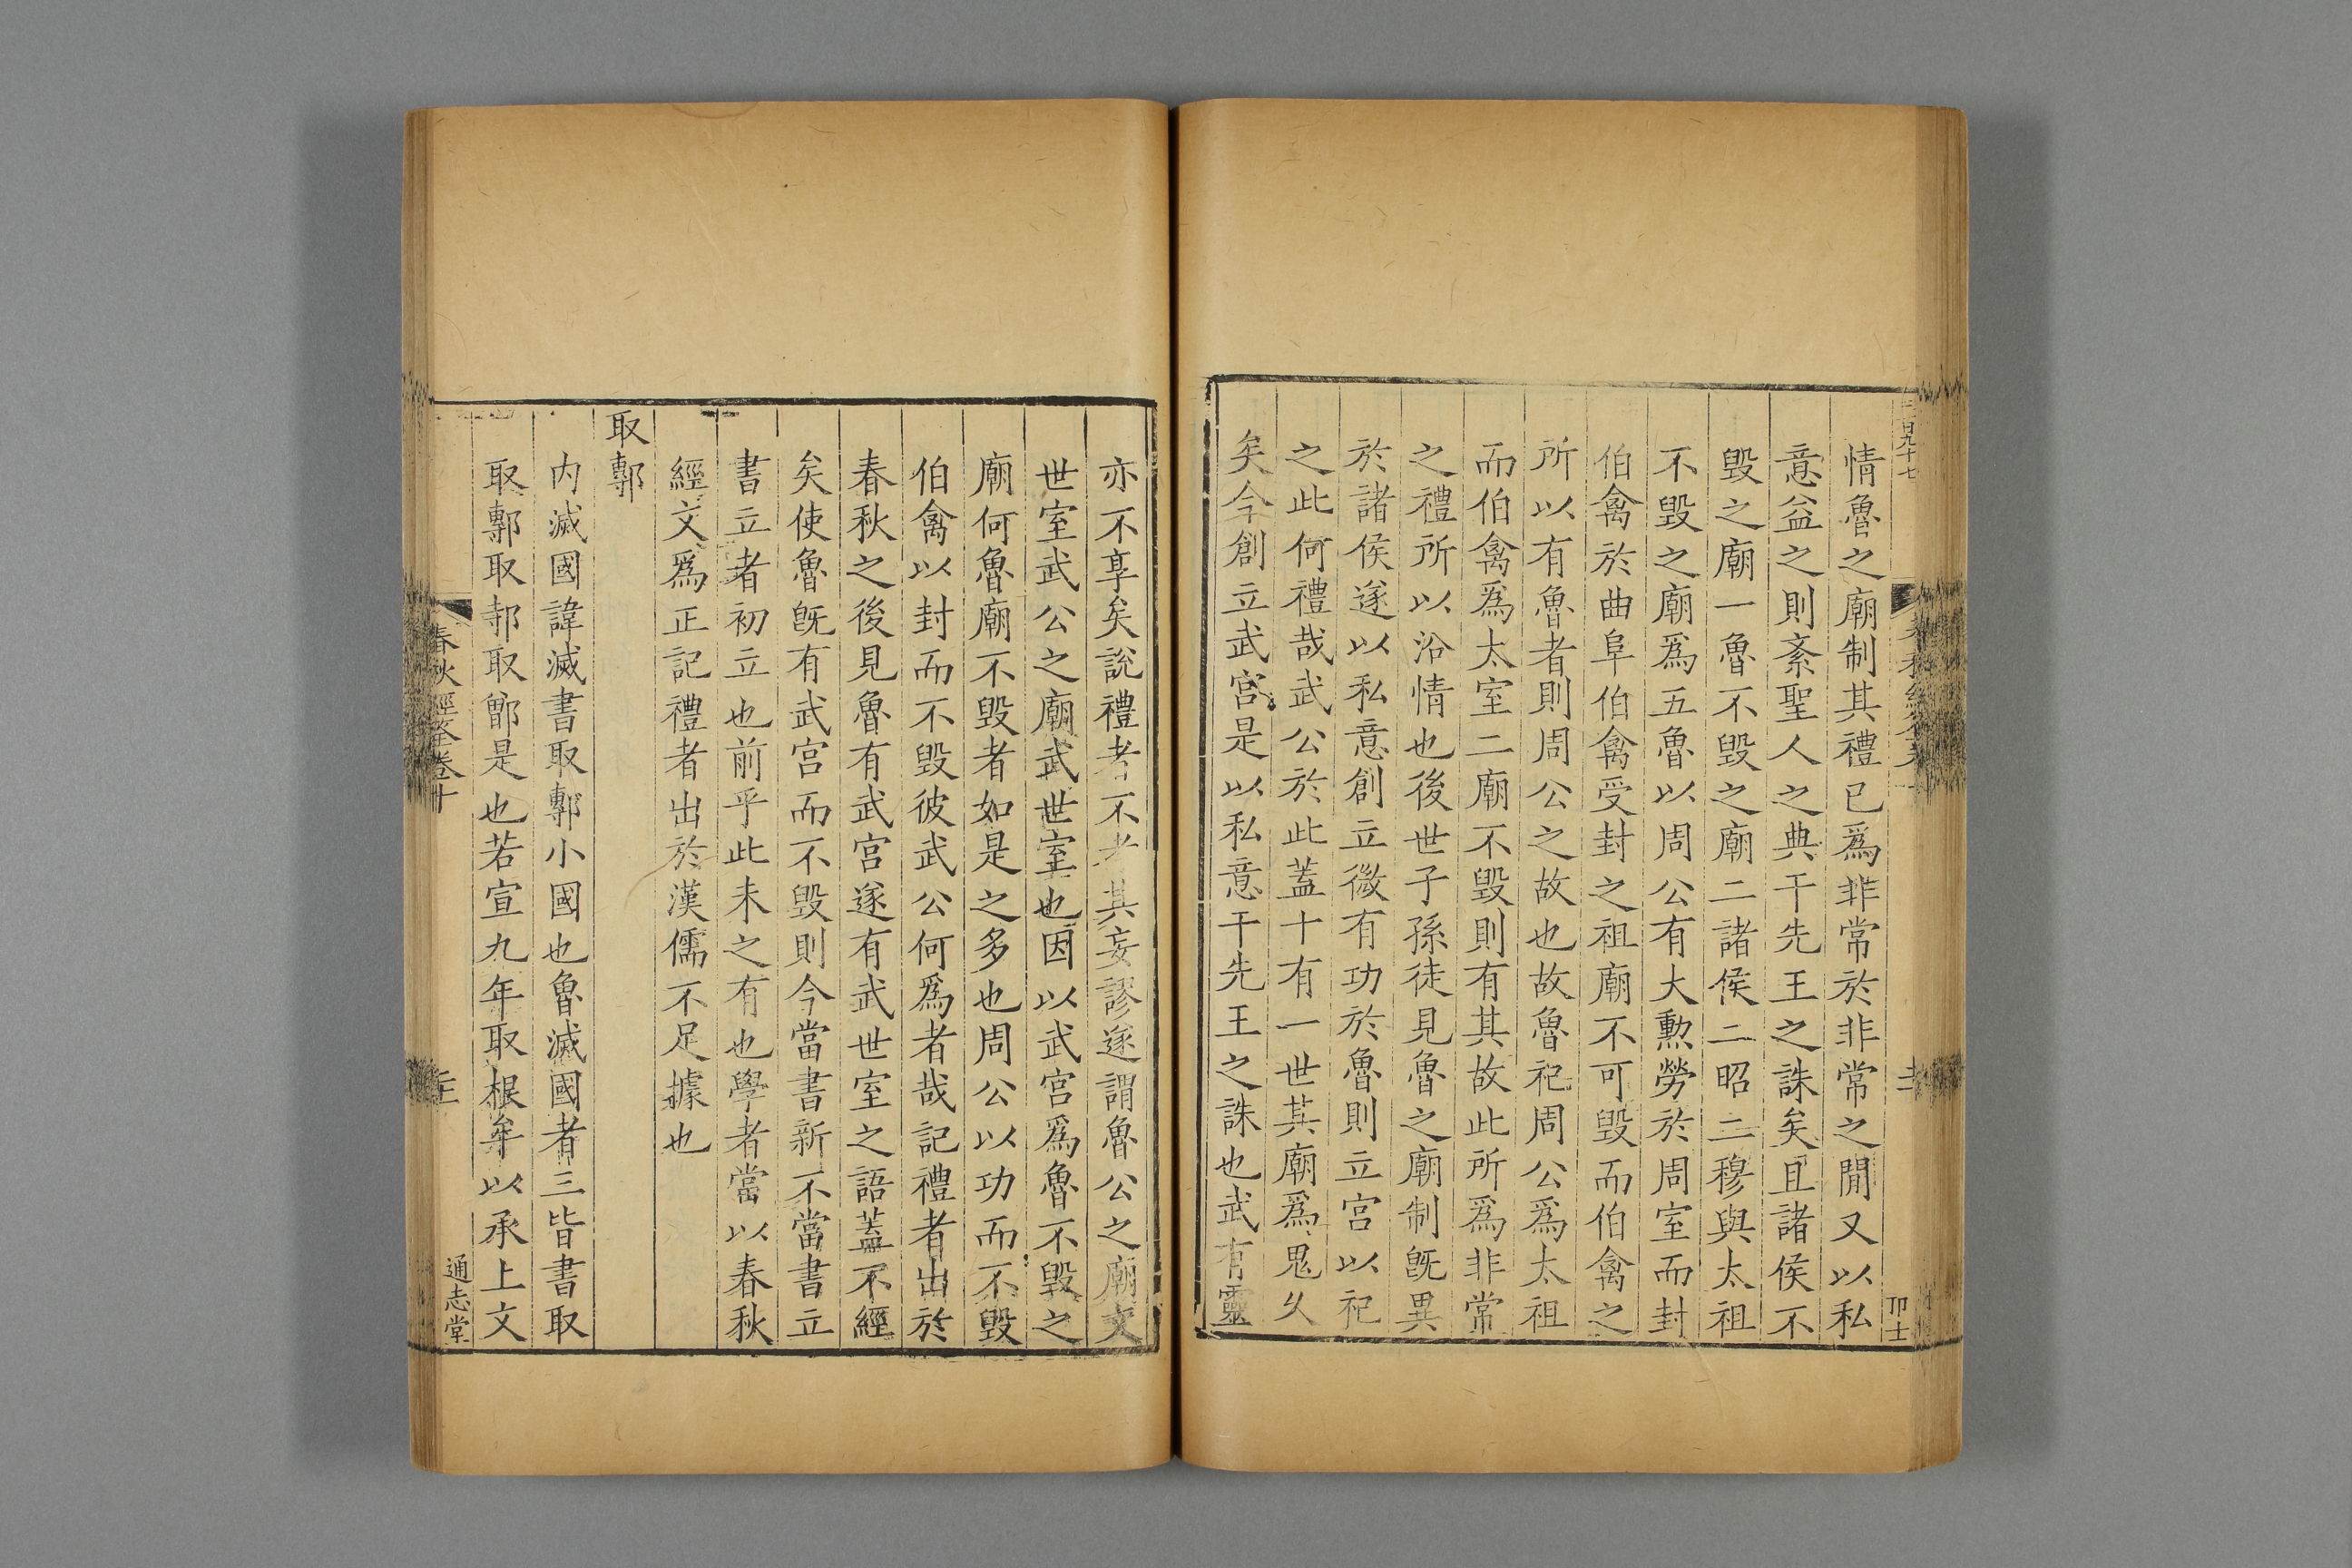 情魯之廟制其禮已爲非常於非常之閒又以私
意益之則紊聖人之典干先王之誅矣且諸侯不
毀之廟一魯不毀之廟二諸侯二昭二穆與太祖
不毀之廟爲五魯以周公有大勲勞於周室而封
伯禽於曲阜伯禽受封之祖廟不可毀而伯禽之
所以有魯者則周公之故也故魯祀周公爲太祖
而伯禽爲太室二廟不毀則有其故此所爲非常
之禮所以沿情也後世子孫徒見魯之廟制旣異
於諸侯遂以私意創立微有功於魯則立宮以祀
之此何禮哉武公於此蓋十有一世其廟爲鬼乆
矣今創立武宮是以私意干先王之誅也武有靈
亦不享矣說禮者不考其妄謬遂謂魯公之廟文
世室武公之廟武世室也因以武宮爲魯不毀之
廟何魯廟不毀者如是之多也周公以功而不毀
伯禽以封而不毀彼武公何爲者哉記禮者出於
春秋之後見魯有武宮遂有武世室之語蓋不經
矣使魯旣有武宮而不毀則今當書新不當書立
書立者初立也前乎此未之有也學者當以春秋
經文爲正記禮者出於漢儒不足據也
取鄟
內滅國諱滅書取鄟小國也魯滅國者三皆書取
取鄟取邿取鄫是也若宣九年取根牟以承上文
春秋經筌卷十
通志堂